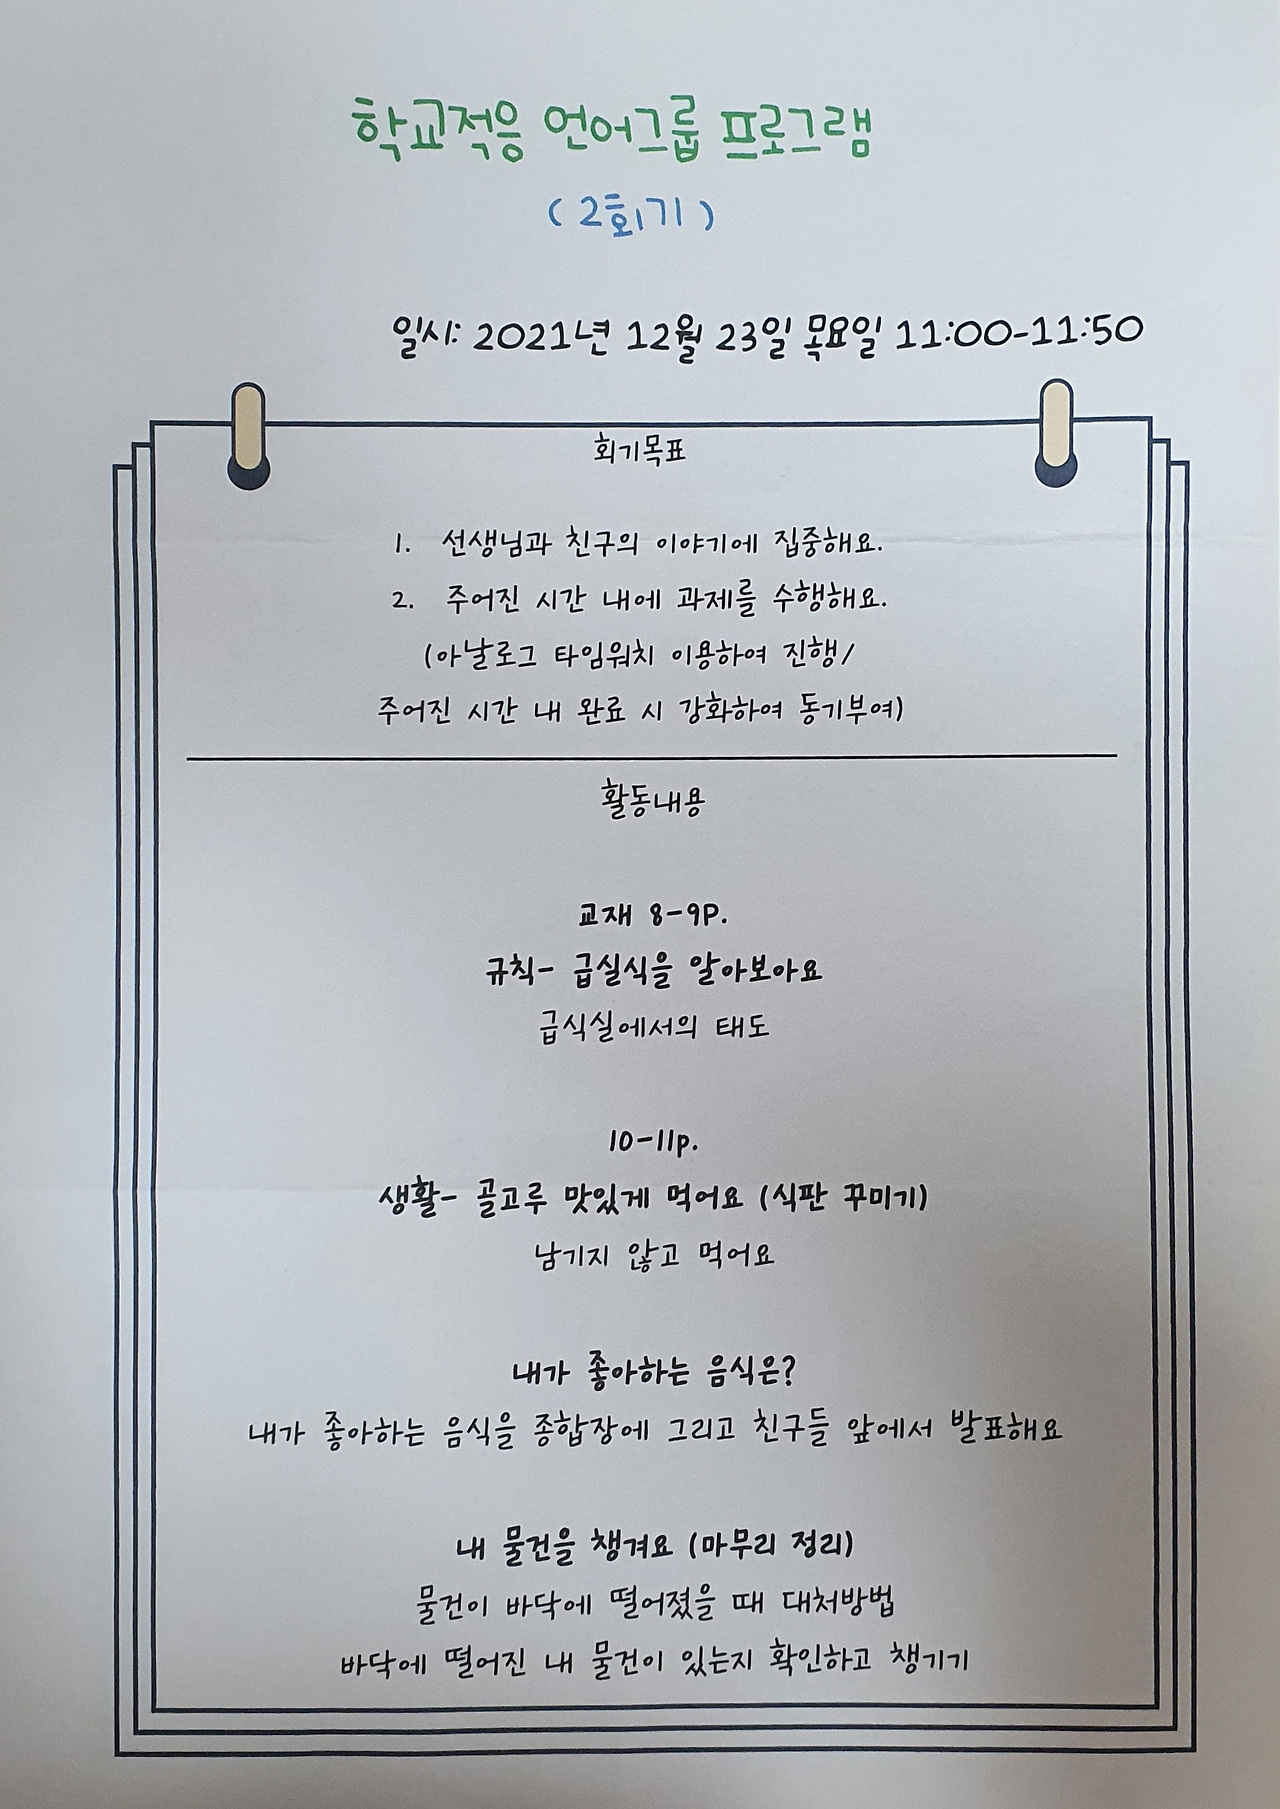 학교적응 언어그룹 프로그램
(2회기)
일시: 2021년 12월 23일 목요일 11:00-11:50
회기목표
1. 선생님과 친구의 이야기에 집중해요.
2. 주어진 시간 내에 과제를 수행해요.
(아날로그 타임워치 이용하여 진행/
주어진 시간 내 완료 시 강화하여 동기부여)
활동내용
교재 8-9P.
규칙- 급실식을 알아보아요
급식실에서의 태도
10-11p.
생활- 골고루 맛있게 먹어요 (식판 꾸미기)
남기지 않고 먹어요
내가 좋아하는 음식은?
내가 좋아하는 음식을 종합장에 그리고 친구들 앞에서 발표해요
내 물건을 챙겨요 (마무리 정리)
물건이 바닥에 떨어졌을 때 대처방법
바닥에 떨어진 내 물건이 있는지 확인하고 챙기기